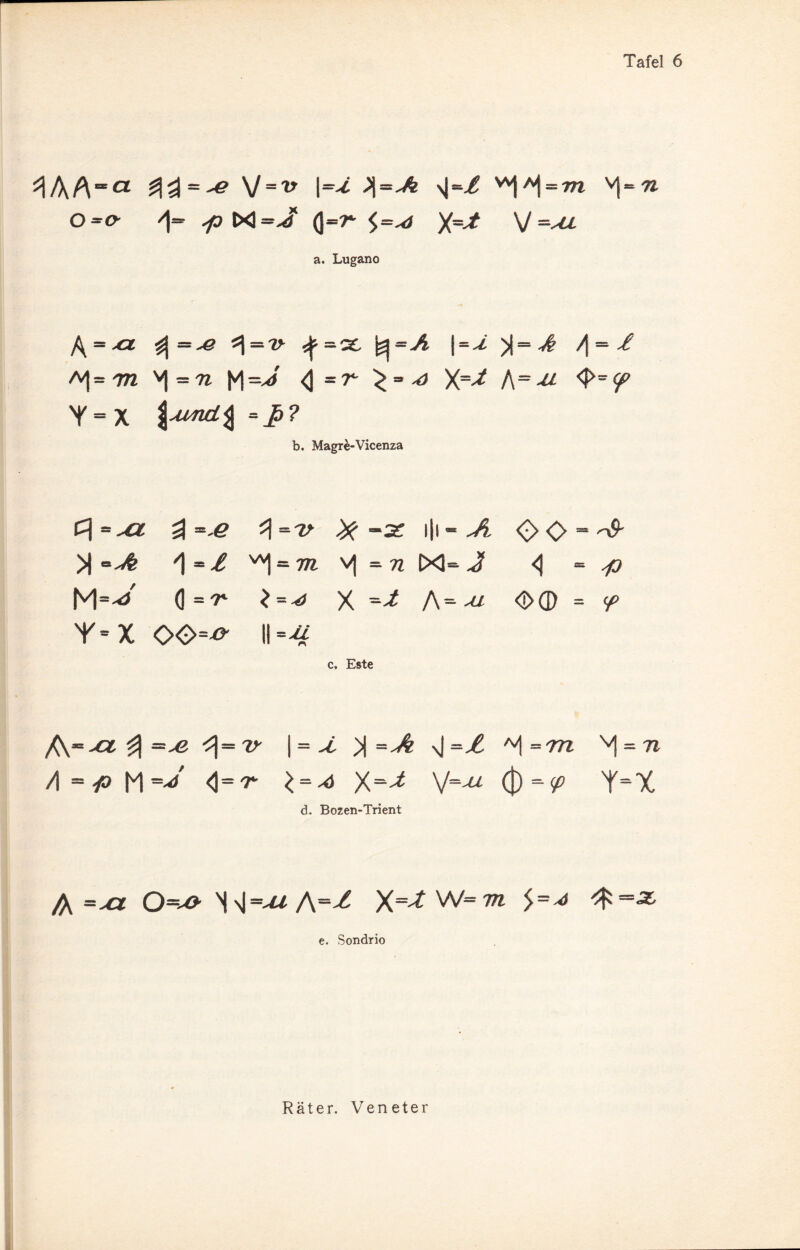 Tafel 6
𐌀𐌀𐌀=a 𐌄𐌄=e V=v |=i 𐌊=k 𐌋=l 𐌌𐌌=m 𐌍=n
O=o 𐌐=p ⋈=š́ 𐌓=r 𐌔=s X=t V=u
a. Lugano
𐌀=a 𐌄=e 𐌅=v 𐌆=z 𐌇=h |=i 𐌊=k 𐌋=l
𐌌=m 𐌍=n M=ś 𐌓=r 𐌔=s X=t Λ=u Φ=φ
Y=χ und =þ?
b. Magrè-Vicenza
𐌀=a 𐌄=e 𐌅=v 𐌆=z ı|ı=h ◇◇=ϑ
𐌊=k 𐌋=l 𐌌=m 𐌍=n ⋈=š 𐌐=p
M=ś 𐌓=r 𐌔=s X=t Λ=u ΦΦ=φ
Y=χ ◇◇=o ||=i̯i̯
c. Este
𐌀=a 𐌄=e 𐌅=v |=i 𐌊=k 𐌋=l 𐌌=m 𐌍=n
𐌐=p M=ś 𐌓=r 𐌔=s X=t V=u Φ=φ Y=χ
d. Bozen-Trient
A=a O=o =u Λ=l X=t W=m 𐌔=s =z
e. Sondrio
Räter. Veneter